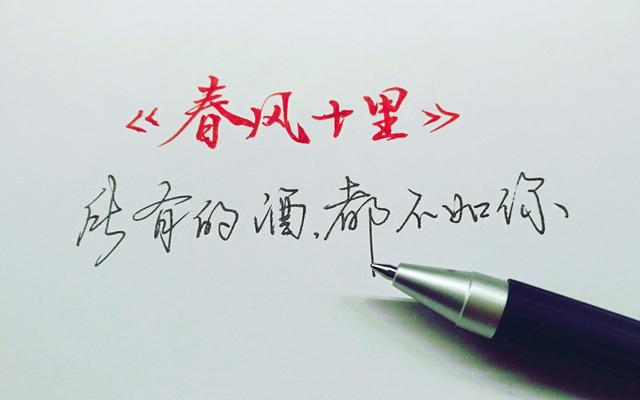 《春风十里》
所有的酒、都不如你、